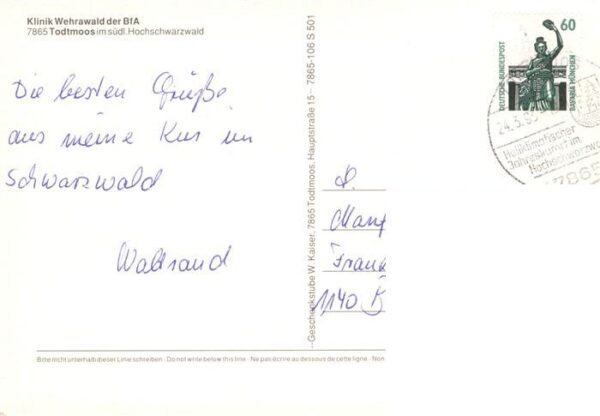 Klinik Wehrawald der BfA
7865 Todtmoos im südl. Hochschwarzwald
Die besten Grüße
aus meine Kur im
Schwarzwald
Waltraud
Bitte nicht unterhalb dieser Linie schreiben · Do not write below this line · Ne pas écrire au dessous de cette ligne · Non
Geschenkstube W. Kaiser, 7865 Todtmoos, Hauptstraße 15 7865-106 S 501
60
DEUTSCHE BUNDESPOST
BAVARIA MÜNCHEN
24.3.
Heilklimatischer
Jahreskurort im
Hochschwarzwa
7865
1140 B